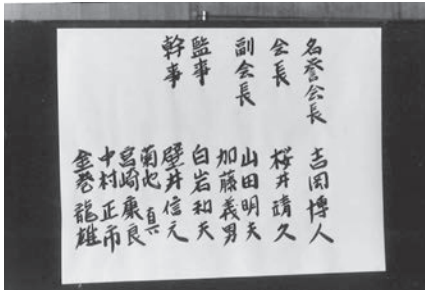 名誉会長 吉岡博人
会長 桜井靖久
副会長 山田明夫
加藤義男
監事 白岩和夫
幹事 壁井信元
菊地 真
宮崎康良
中村正市
金巻龍雄